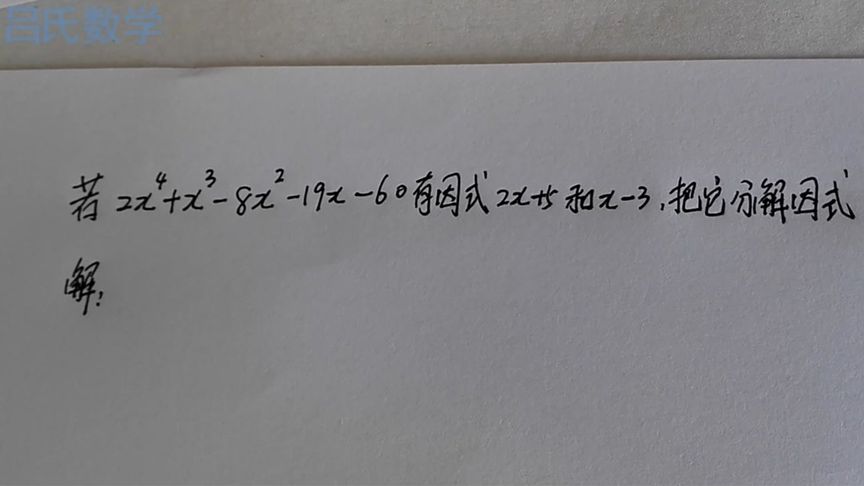 吕氏数学
若 2x⁴+x³-8x²-19x-60有因式2x+5和x-3,把它分解因式
解: